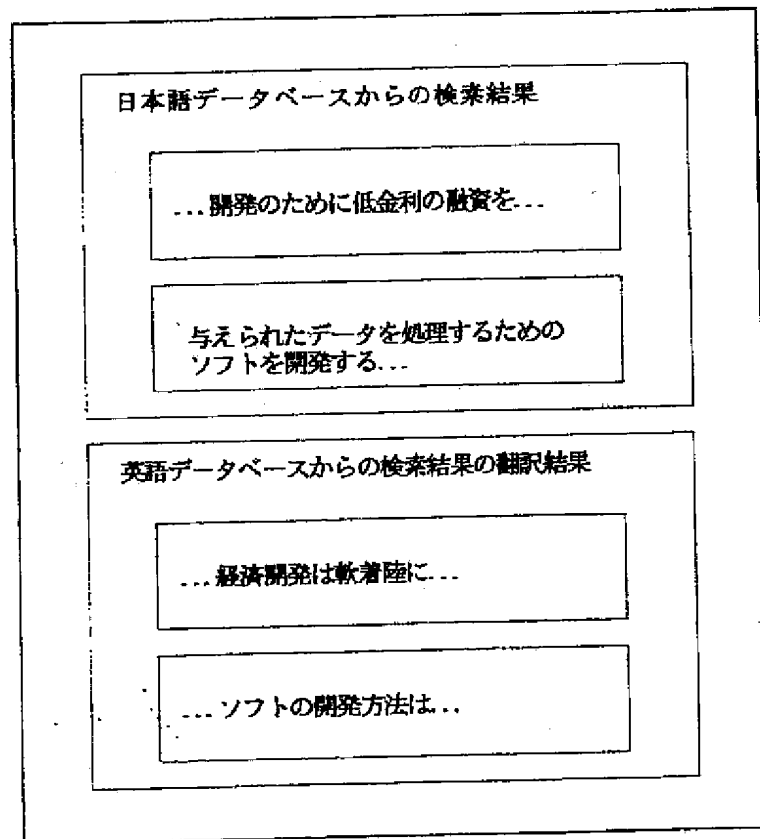 日本語データベースからの検索結果
...開発のために低金利の融資を...
与えられたデータを処理するための
ソフトを開発する...
英語データベースからの検索結果の翻訳結果
...経済開発は軟着陸に...
...ソフトの開発方法は...